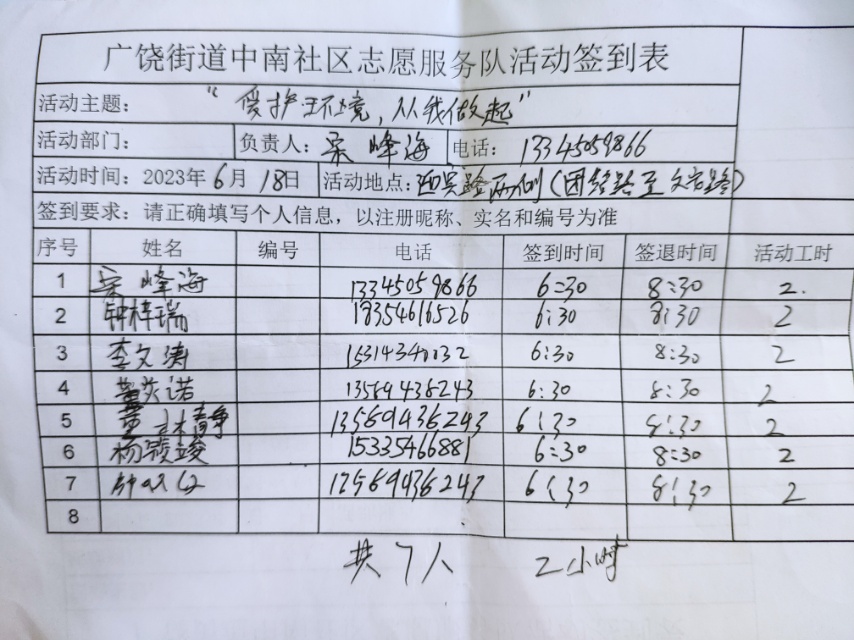 广饶街道中南社区志愿服务队活动签到表
活动主题： “爱护环境，从我做起”
活动部门： 负责人：宋峰海 电话：13345059866
活动时间：2023年6月18日 活动地点：
签到要求：请正确填写个人信息，以注册昵称、实名和编号为准
序号 姓名 编号 电话 签到时间 签退时间 活动工时
1 宋峰海 13345059866 6:30 8:30 2.
2 钟梓瑞 18354616526 6:30 8:30 2
3 李文涛 15314340032 6:30 8:30 2
4 13569436243 6:30 8:30 2
5 13569436243 6:30 8:30 2
6 杨颖竣 15335466881 6:30 8:30 2
7 13569436243 6:30 8:30 2
8
共7人 2小时